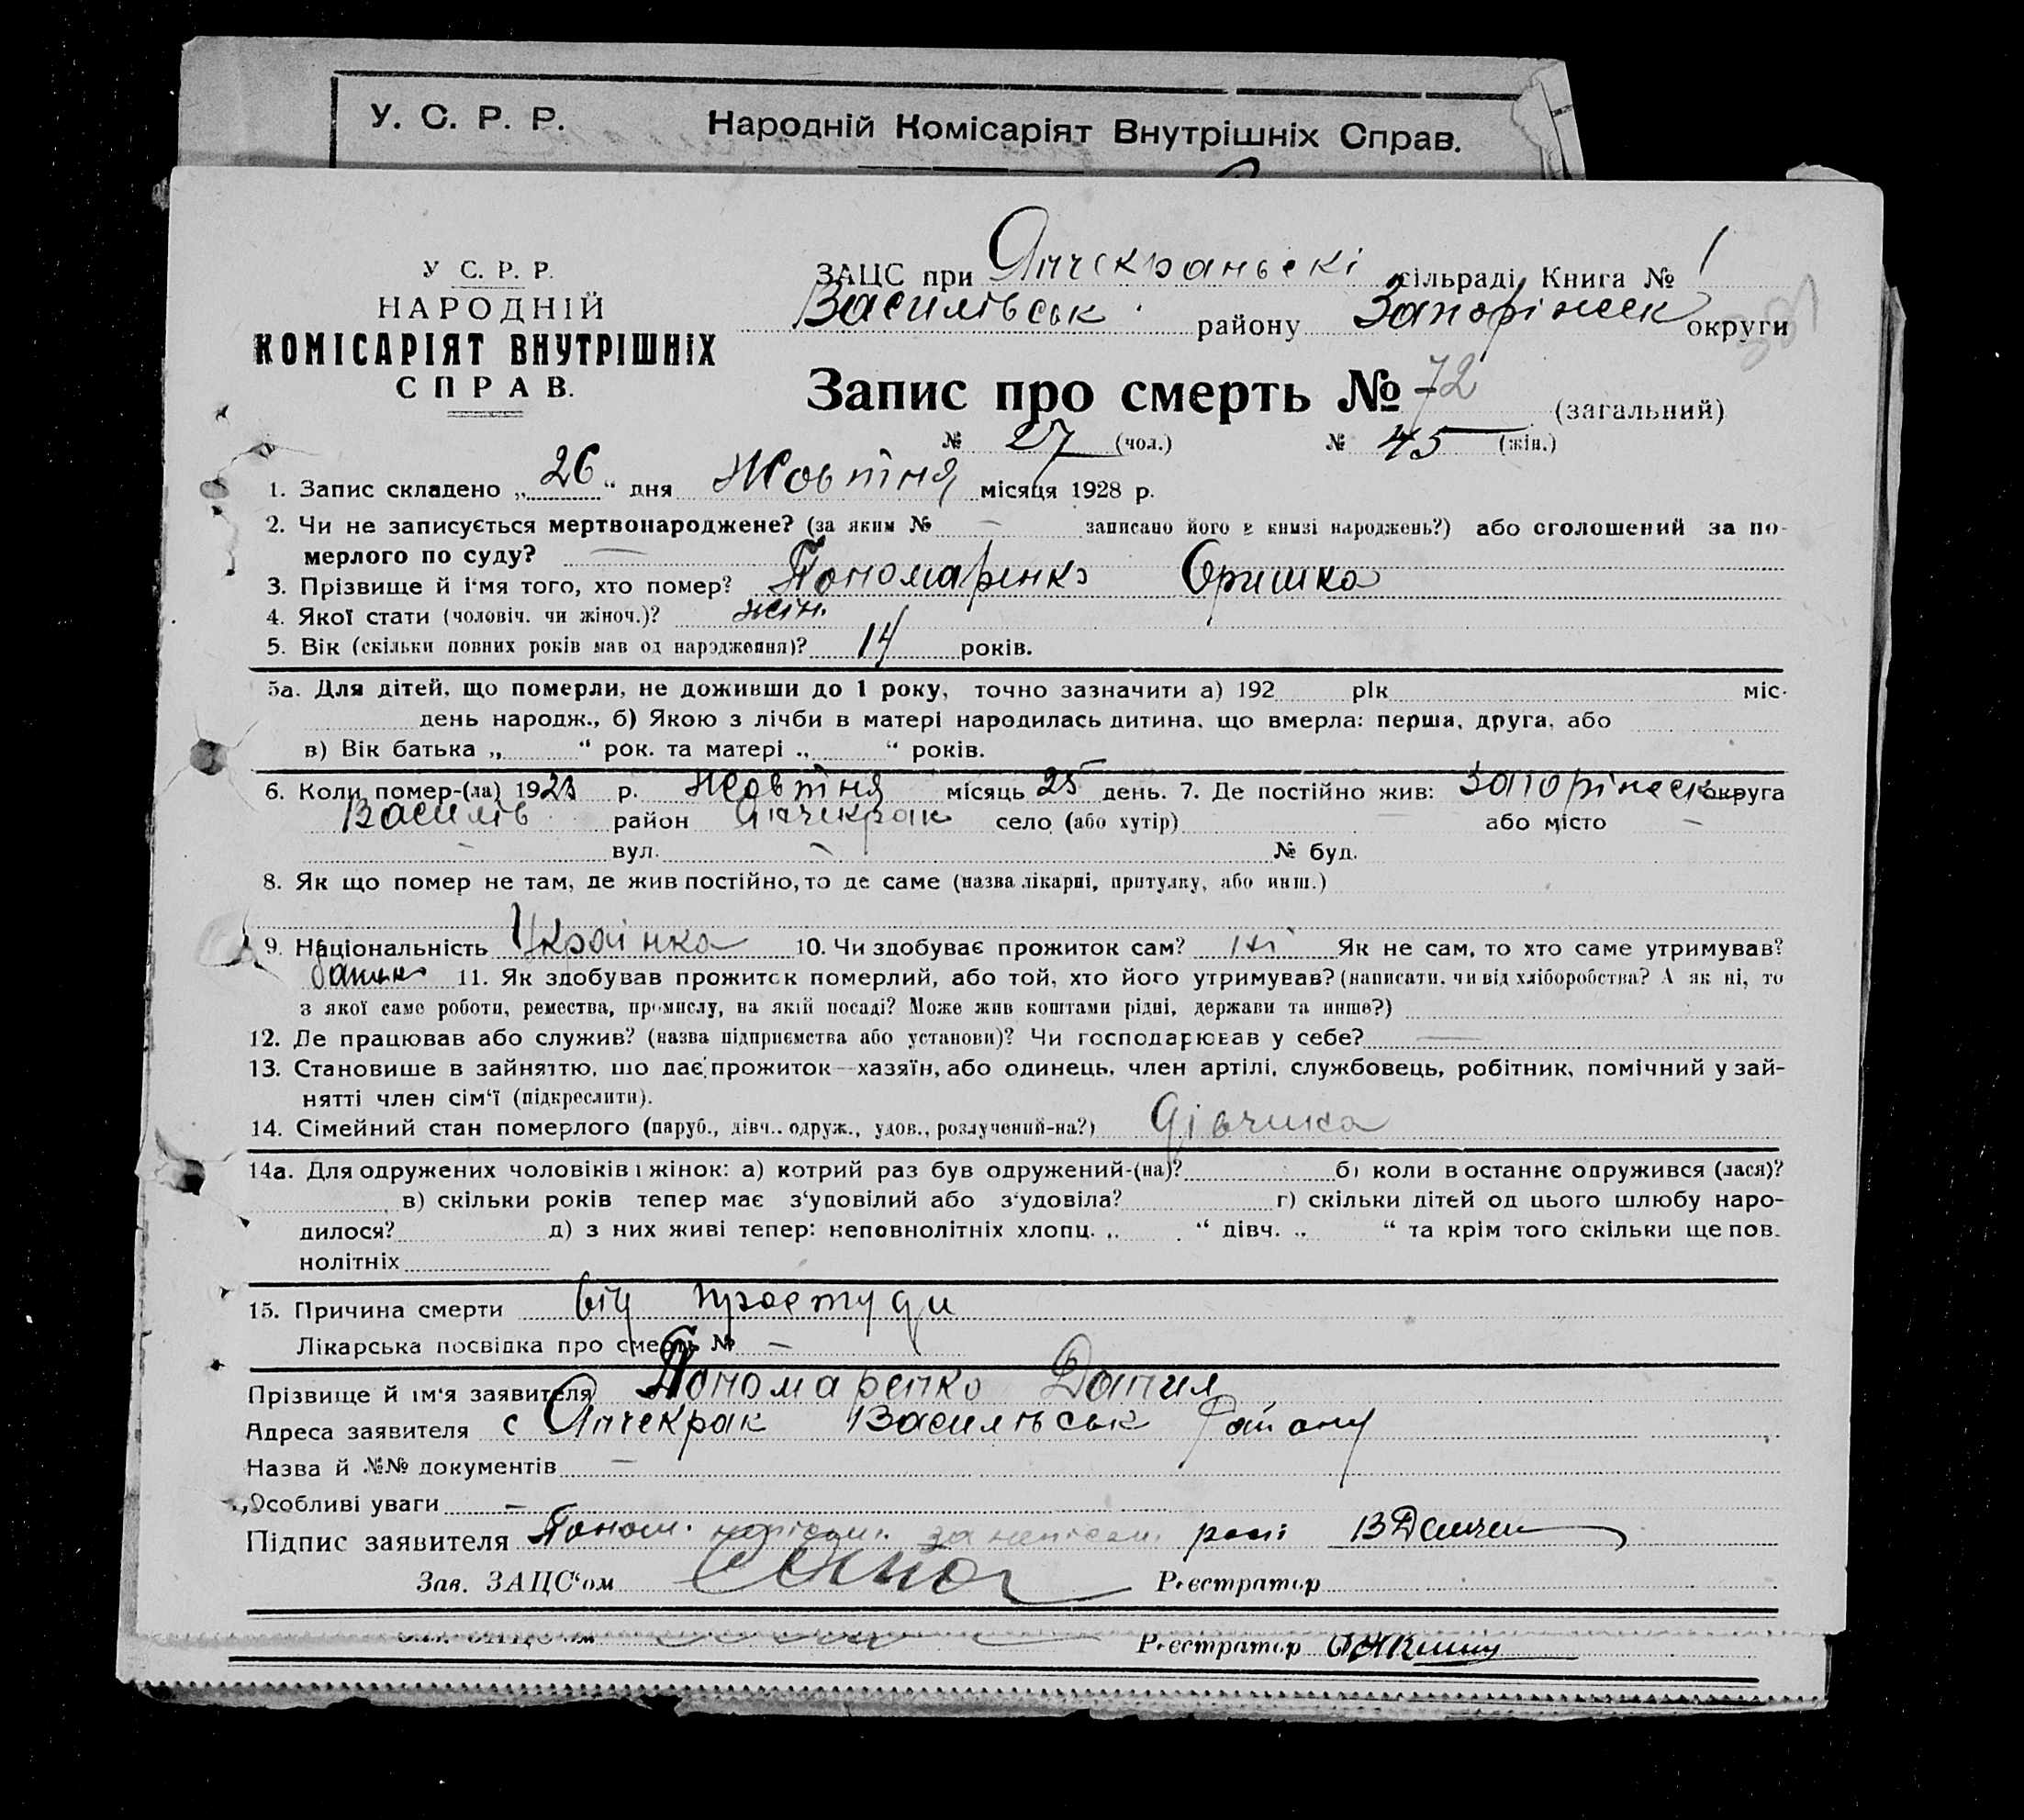 У. С. Р. Р. Народній Комісаріят Внутрішніх Справ.
У С. Р. Р.
НАРОДНІЙ
КОМІСАРІЯТ ВНУТРІШНІХ
СПРАВ.
ЗАЦС при Янчекраньскі сільраді Книга № 1
Василівськ району Запоріжск округи
Запис про смерть № 72 (загальний)
№ 27 (чол.) № 45 (жін.)
1. Запис складено „26“ дня Жовтня місяця 1928 р.
2. Чи не записується мертвонароджене? (за яким № – записано його в книзі народжень?) або оголошений за по-
мерлого по суду? —
3. Прізвище й ім'я того, хто помер? Пономаренко Оришка
4. Якої стати (чоловіч. чи жіноч.)? жін.
5. Вік (скільки повних років мав од народження)? 14 років.
5а. Для дітей, що померли, не доживши до 1 року, точно зазначити а) 192 рік міс.
день народж., б) Якою з лічби в матері народилась дитина, що вмерла: перша, друга, або
в) Вік батька „ “ рок. та матері „ “ років.
6. Коли помер-(ла) 1928 р. Жовтня місяць 25 день. 7. Де постійно жив: Запоріжск округа
Василів район Янчекрак село (або хутір) – або місто –
– вул. – № буд.
8. Як що помер не там, де жив постійно, то де саме (назва лікарні, притулку, або инш.)
9. Національність Українка 10. Чи здобуває прожиток сам? ні Як не сам, то хто саме утримував?
батько 11. Як здобував прожиток померлий, або той, хто його утримував? (написати, чи від хліборобства? А як ні, то
з якої саме роботи, ремества, промислу, на якій посаді? Може жив коштами рідні, держави та инше?)
12. Де працював або служив? (назва підприємства або установи)? Чи господарював у себе? —
13. Становище в зайняттю, що дає прожиток—хазяїн, або одинець, член артілі, службовець, робітник, помічний у зай-
нятті член сім'ї (підкреслити).
14. Сімейний стан померлого (паруб., дівч., одруж., удов., розлучений-на?) дівчина
14а. Для одружених чоловіків і жінок: а) котрий раз був одружений-(на)? б) коли востаннє одружився (лася)?
в) скільки років тепер має з'удовілий або з'удовіла? г) скільки дітей од цього шлюбу наро-
дилося? д) з них живі тепер: неповнолітніх хлопц. „ “ дівч. „ “ та крім того скільки ще пов-
нолітніх
15. Причина смерти від простуди
Лікарська посвідка про смерть № –
Прізвище й ім'я заявителя Пономаренко Данил
Адреса заявителя с Янчекрак Васильівськ Району
Назва й №№ документів –
Особливі уваги –
Підпис заявителя Поном.
Зав. ЗАЦС'ом Реєстратор
Зав. ЗАЦС'ом Реєстратор